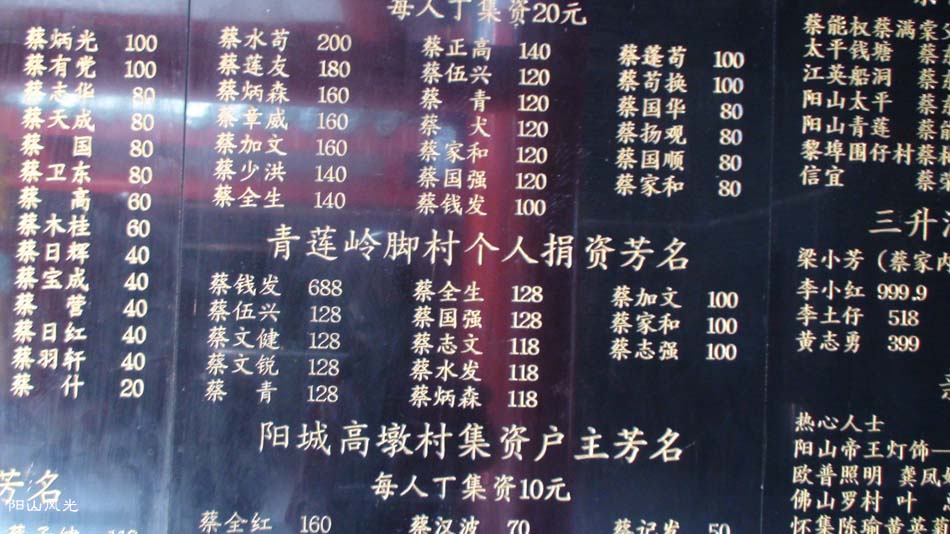 每人丁集资20元
蔡炳光 100
蔡有党 100
蔡志华 80
蔡天成 80
蔡国 80
蔡卫东 80
蔡高 60
蔡木桂 60
蔡日辉 40
蔡宝成 40
蔡营 40
蔡日红 40
蔡羽轩 40
蔡什 20
芳名
蔡水苟 200
蔡莲友 180
蔡炳森 160
蔡章威 160
蔡加文 160
蔡少洪 140
蔡全生 140
蔡正高 140
蔡伍兴 120
蔡青 120
蔡犬 120
蔡家和 120
蔡国强 120
蔡钱发 100
蔡蓬苟 100
蔡苟换 100
蔡国华 80
蔡扬观 80
蔡国顺 80
蔡家和 80
青莲岭脚村个人捐资芳名
蔡钱发 688
蔡伍兴 128
蔡文健 128
蔡文锐 128
蔡青 128
蔡全生 128
蔡国强 128
蔡志文 118
蔡水发 118
蔡炳森 118
蔡加文 100
蔡家和 100
蔡志强 100
阳城高墩村集资户主芳名
每人丁集资10元
蔡全红 160
蔡汉波 70
蔡记发 50
蔡能权蔡满棠
太平钱塘
江英船洞
阳山太平
阳山青莲
黎埠围仔村
信宜
三升
梁小芳（蔡家内
李小红 999.9
李土仔 518
黄志勇 399
热心人士
阳山帝王灯饰
欧普照明 龚凤
佛山罗村 叶
怀集陈瑜黄英
阳山风光